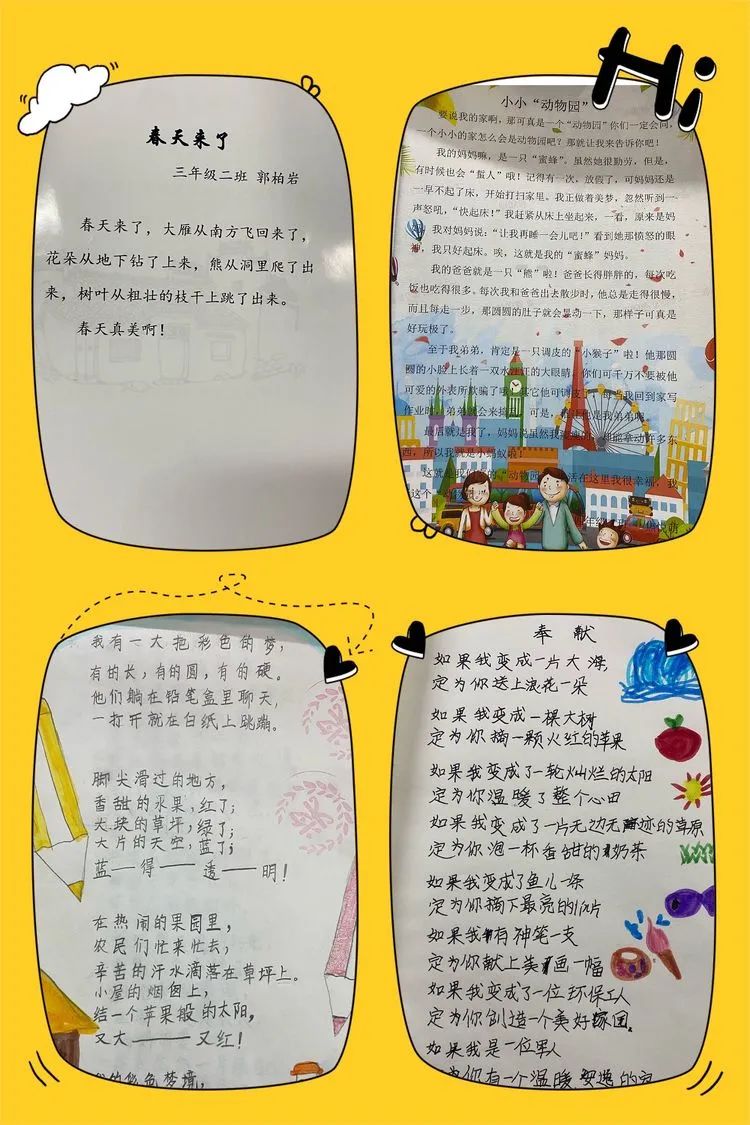 春天来了
三年级二班 郭柏岩
春天来了，大雁从南方飞回来了，
花朵从地下钻了上来，熊从洞里爬了出
来，树叶从粗壮的枝干上跳了出来。
春天真美啊！
Hi
小小“动物园”
要说我的家啊，那可真是一个“动物园”你们一定会问，
一个小小的家怎么会是动物园吧？那就让我来告诉你吧！
我的妈妈嘛，是一只“蜜蜂”。虽然她很勤劳，但是，
有时候也会“蜇人”哦！记得有一次，放假了，可妈妈还是
一早不起了床，开始打扫家里。我正做着美梦，忽然听到一
声怒吼，“快起床！”我赶紧从床上坐起来，一看，原来是妈
我对妈妈说：“让我再睡一会儿吧！”看到她那愤怒的眼
神，我只好起床。唉，这就是我的“蜜蜂”妈妈。
我的爸爸就是一只“熊”啦！爸爸长得胖胖的，每次吃
饭也吃得很多。每次我和爸爸出去散步时，他总是走得很慢，
而且每走一步，那圆圆的肚子就会晃动一下，那样子可真是
好玩极了。
至于我弟弟，肯定是一只调皮的“小猴子”啦！他那圆
圆的小脸上长着一双水汪汪的大眼睛，你们可千万不要被他
可爱的外表所欺骗了哦！其它他可调皮了，每当我回到家写
作业时，弟弟就会来捣乱，可是，谁让他是我弟弟呢。
最后就是我了，妈妈说虽然我瘦瘦的，但能拿动许多东
西，所以我就是小蚂蚁啦！
这就是我们家的“动物园”，生活在这里我很幸福，我
这个“动物园”
我有一大把彩色的梦，
有的长，有的圆，有的硬。
他们躺在铅笔盒里聊天，
一打开就在白纸上跳蹦。
脚尖滑过的地方，
香甜的水果，红了；
大块的草坪，绿了；
大片的天空，蓝了；
蓝——得——透——明！
在热闹的果园里，
农民们忙来忙去，
辛苦的汗水滴落在草坪上。
小屋的烟囱上，
结一个苹果般的太阳，
又大——又红！
的彩色梦境，
奉献
如果我变成一片大海，
定为你送上浪花一朵
如果我变成一棵大树
定为你摘一颗火红的苹果
如果我变成了一轮灿烂的太阳
定为你温暖了整个心田
如果我变成了一片无边无迹的草原
定为你泡一杯香甜的奶茶
如果我变成了鱼儿一条
定为你摘下最亮的一片
如果我有神笔一支
定为你献上美画一幅
如果我变成了一位环保工人
定为你创造一个美好家园
如果我是一位军人
为你有一个温暖安逸的